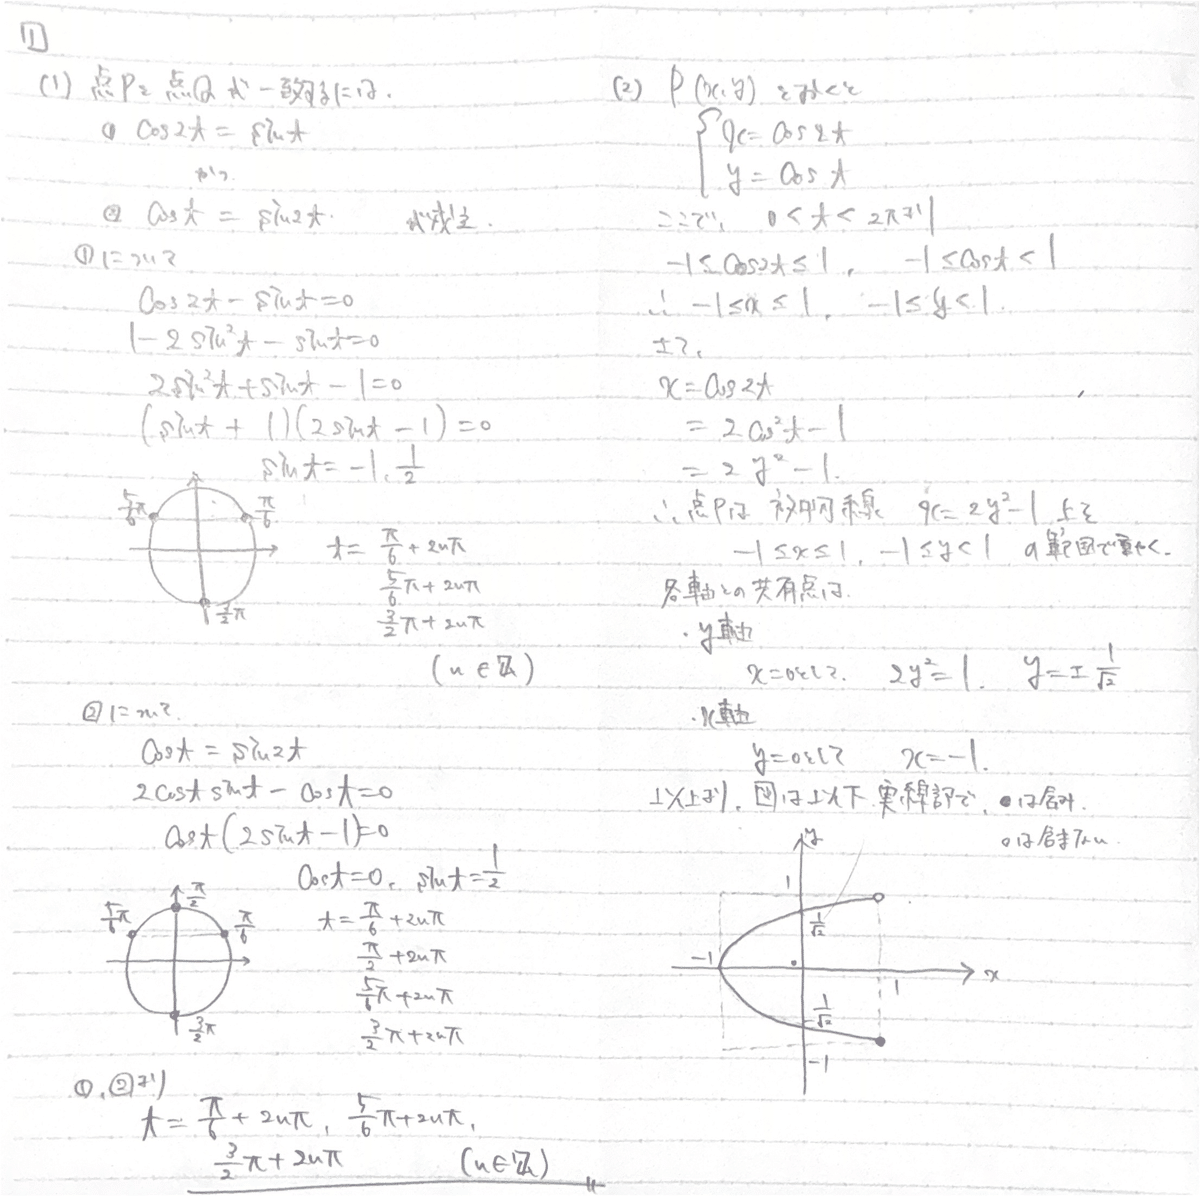 1
(1) 点Pと点Qが一致するには.
① cos2t = sint
かつ
② cost = sin2t. が成立.
①について
cos2t - sint = 0
1 - 2sin²t - sint = 0
2sin²t + sint - 1 = 0
(sint + 1)(2sint - 1) = 0
sint = -1, 1/2
5/6π π/6
3/2π
t = π/6 + 2nπ
5/6π + 2nπ
3/2π + 2nπ
(n ∈ ℤ)
②について.
cost = sin2t
2cost sint - cost = 0
cost(2sint - 1) = 0
cost = 0, sint = 1/2
π/2
5/6π π/6
3/2π
t = π/6 + 2nπ
π/2 + 2nπ
5/6π + 2nπ
3/2π + 2nπ
①, ②より
t = π/6 + 2nπ, 5/6π + 2nπ,
3/2π + 2nπ (n ∈ ℤ)
(2) P(x, y) とおくと
x = cos2t
y = cost
ここで, 0 < t < 2πより
-1 ≤ cos2t ≤ 1, -1 ≤ cost < 1
∴ -1 ≤ x ≤ 1, -1 ≤ y < 1.
また,
x = cos2t
= 2cos²t - 1
= 2y² - 1.
∴ 点Pは 放物線 x = 2y² - 1 上を
-1 ≤ x ≤ 1, -1 ≤ y < 1 の範囲で動く.
各軸との共有点は.
・y軸
x=0として. 2y² = 1. y = ± 1/√2
・x軸
y=0として x = -1.
以上より, 図は以下 実線部で, ●は含み.
○は含まない
y
1
1/√2
-1
1
x
-1/√2
-1